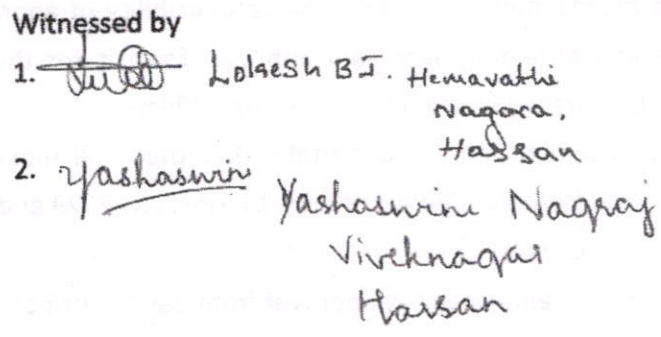 Witnessed by
1. Lokesh B J. Hemavathi
Nagara,
Hassan
2. Yashaswini
Yashaswini Nagraj
Viveknagar
Hassan